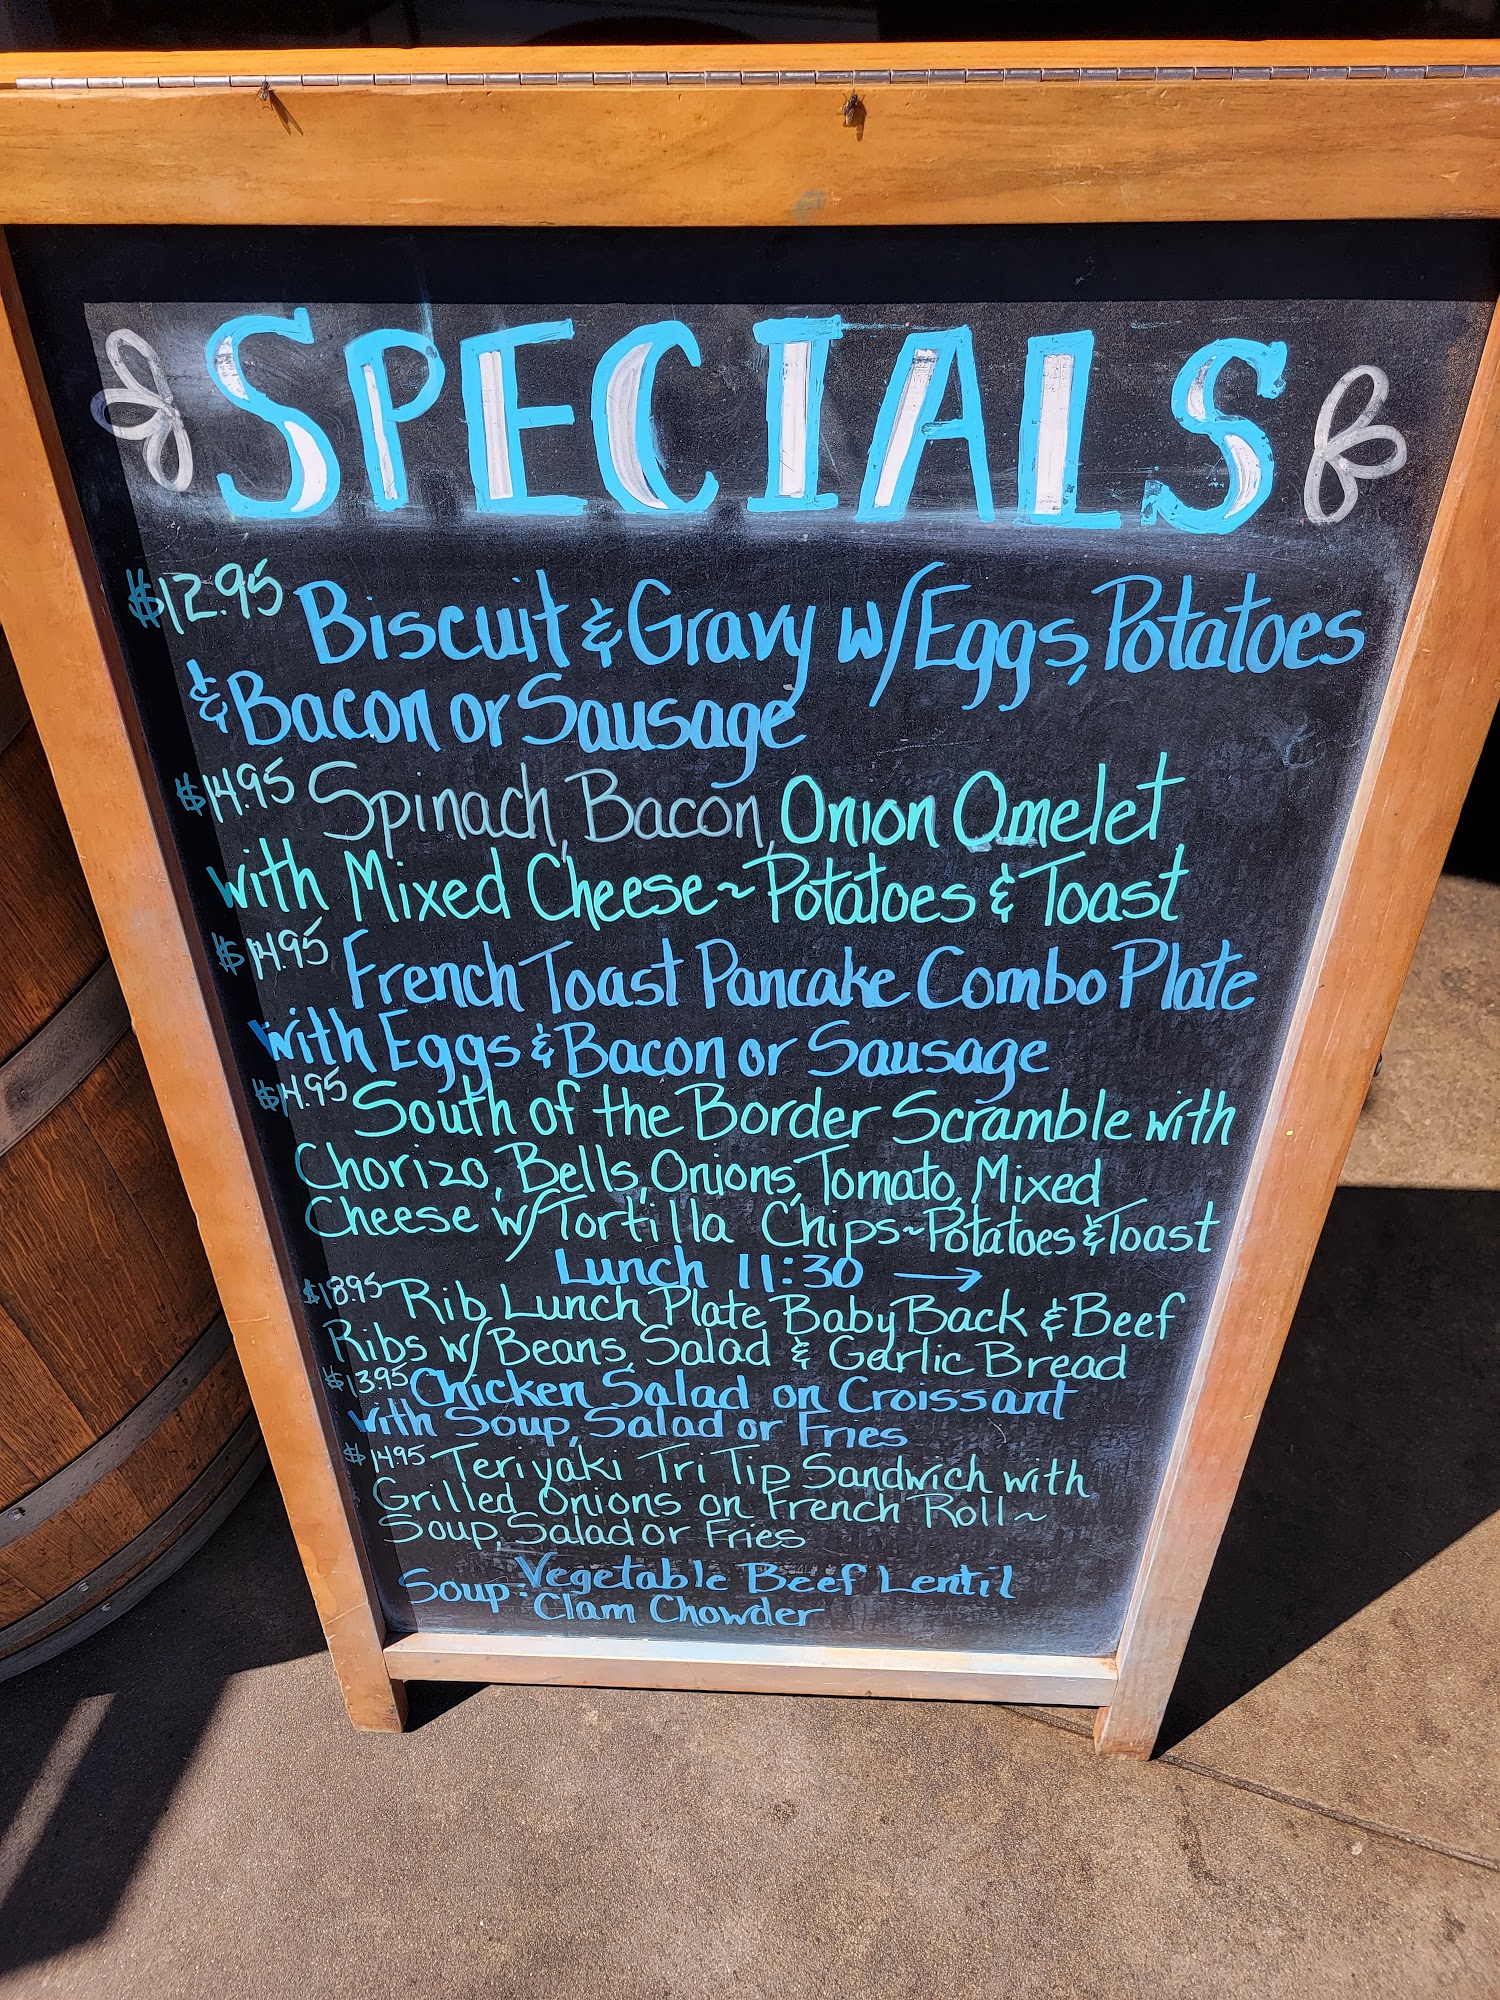 SPECIALS
$12.95 Biscuit & Gravy w/Eggs, Potatoes
& Bacon or Sausage
$14.95 Spinach, Bacon, Onion Omelet
with Mixed Cheese ~ Potatoes & Toast
$14.95 French Toast Pancake Combo Plate
with Eggs & Bacon or Sausage
$14.95 South of the Border Scramble with
Chorizo, Bells, Onions, Tomato, Mixed
Cheese w/Tortilla Chips ~ Potatoes & Toast
Lunch 11:30 →
$18.95 Rib Lunch Plate Baby Back & Beef
Ribs w/Beans, Salad & Garlic Bread
$13.95 Chicken Salad on Croissant
with Soup, Salad or Fries
$14.95 Teriyaki Tri Tip Sandwich with
Grilled Onions on French Roll ~
Soup, Salad or Fries
Soup: Vegetable Beef Lentil
Clam Chowder